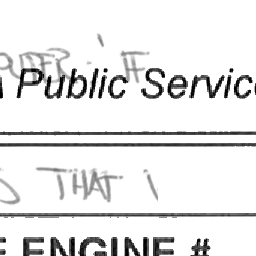 IF
Public Service
THAT I
E ENGINE #